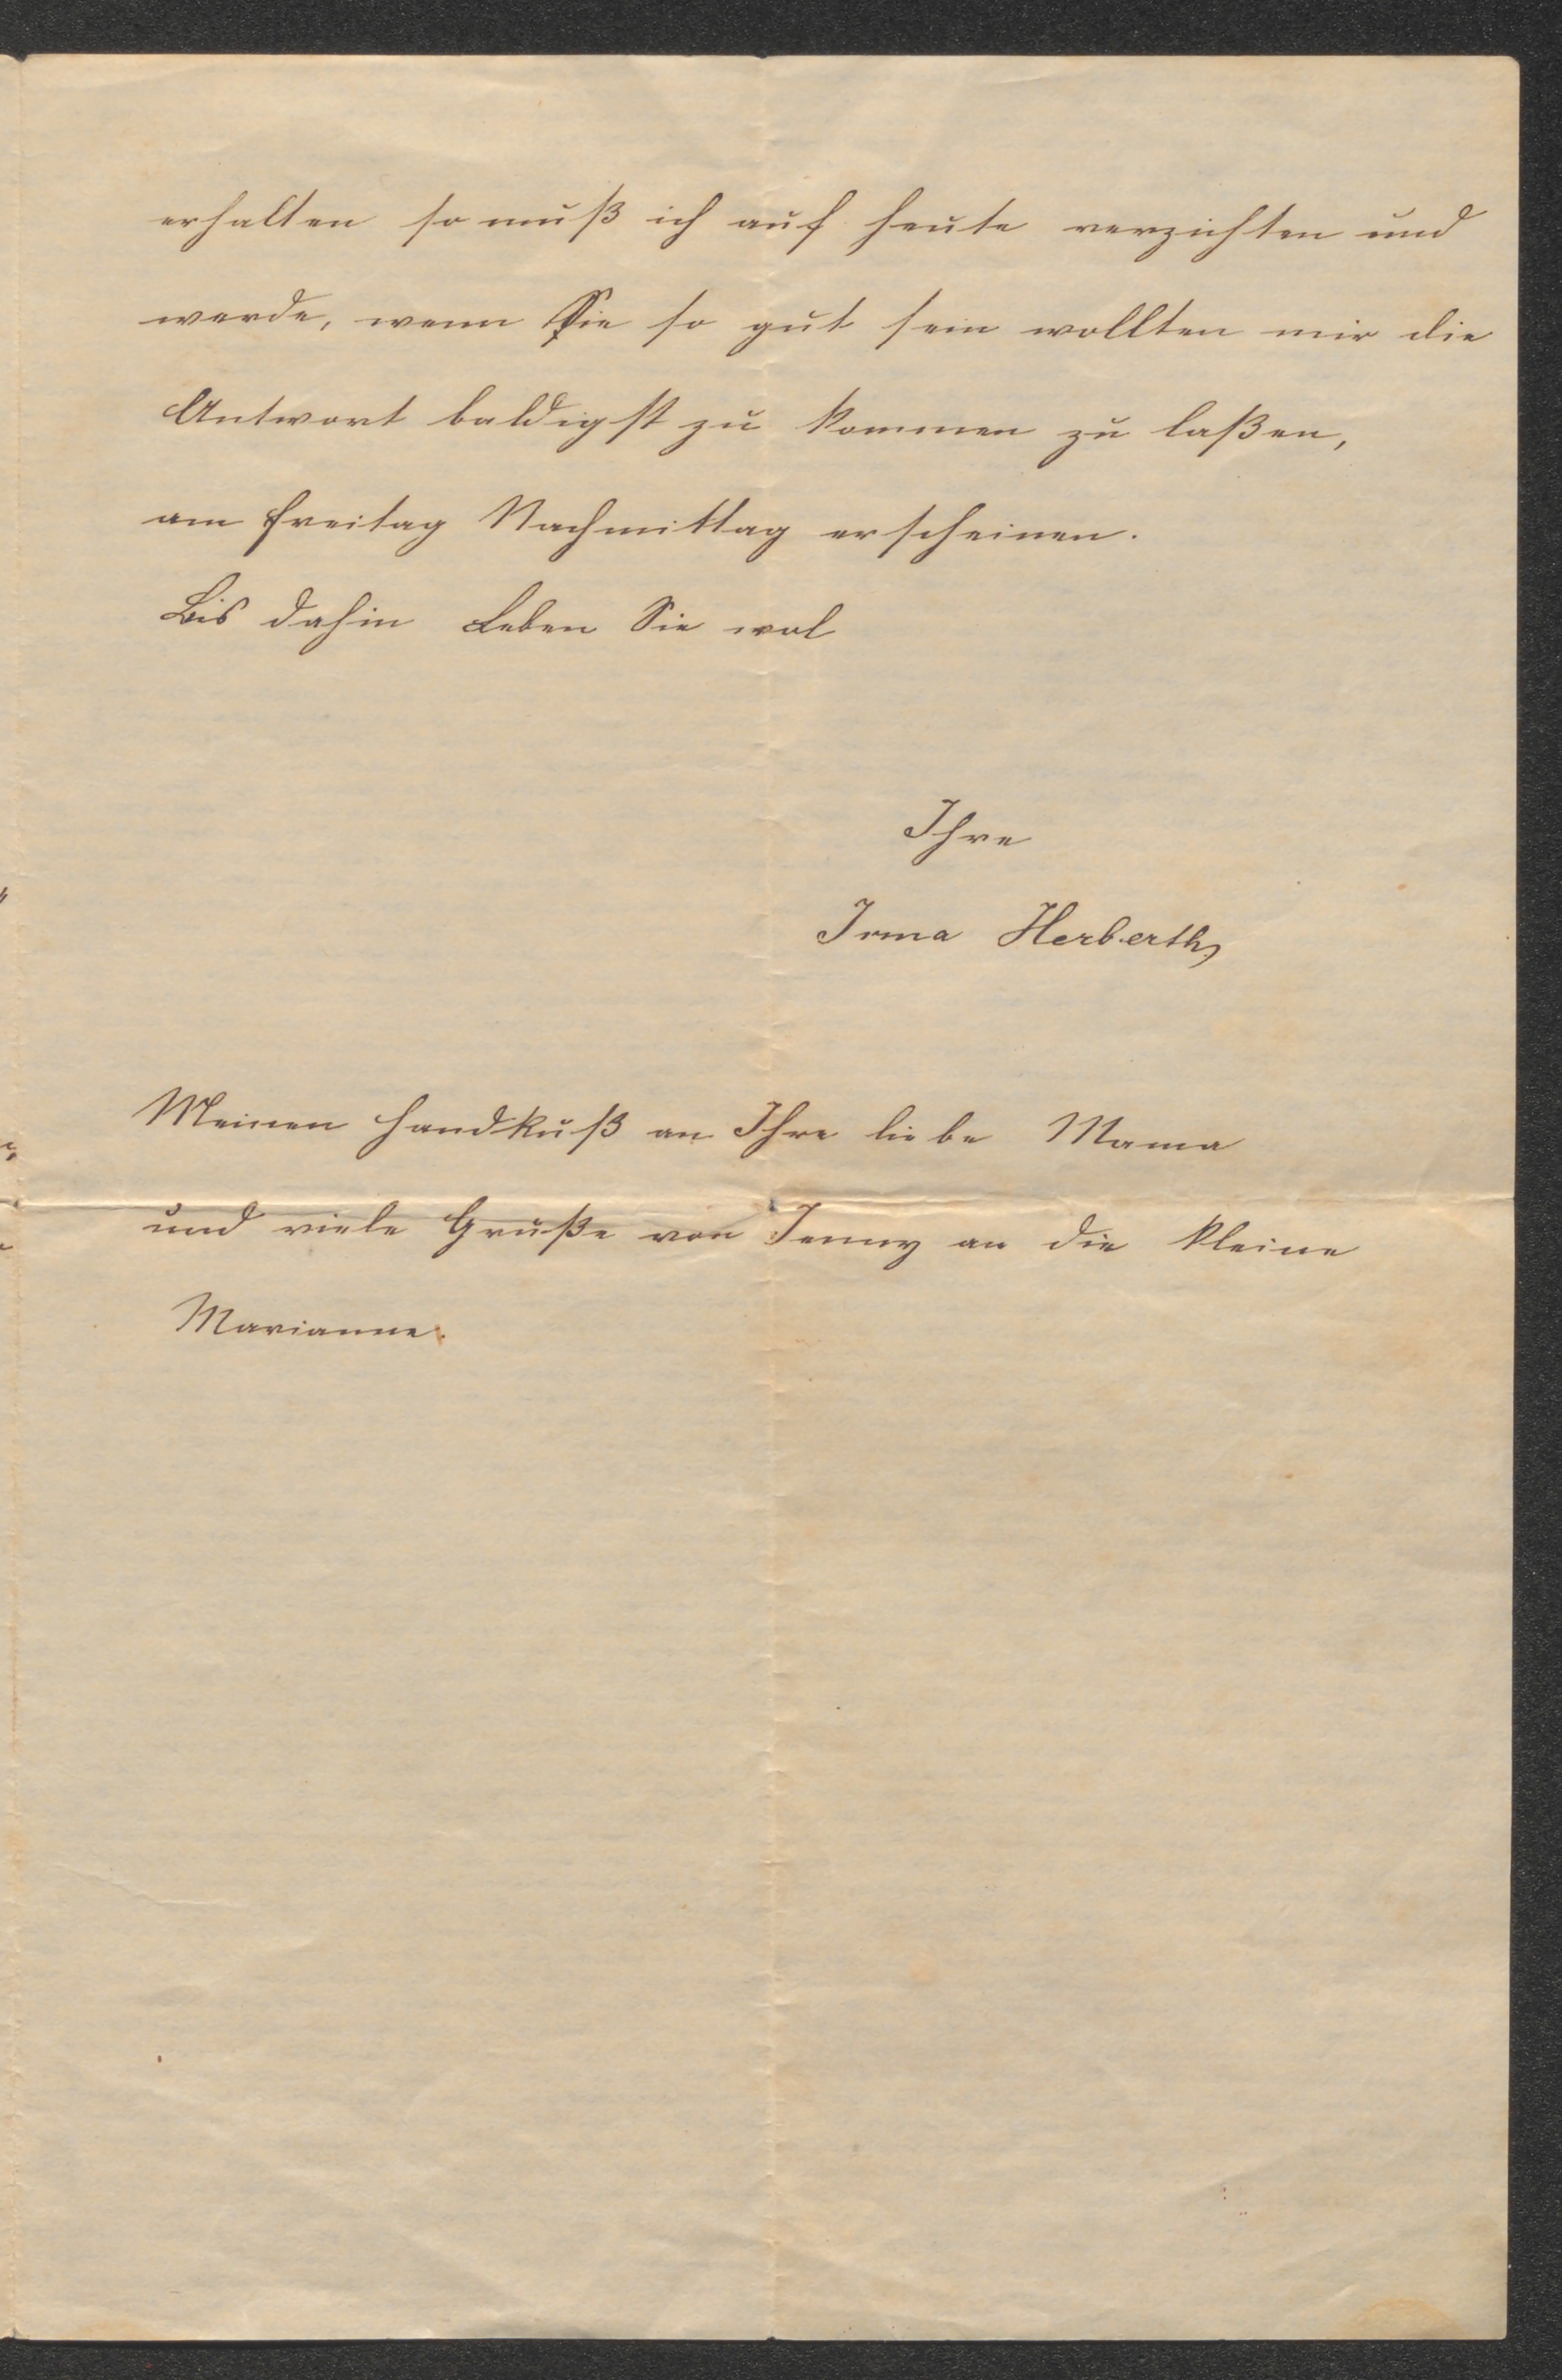 erhalten so muß ich auf heute verzichten und
werde, wenn Sie so gut sein wollten mir die
Antwort baldigst zu kommen zu laßen,
am Freitag Nachmittag erscheinen.
Bis dahin Leben Sie wol
Ihre
Irma Herberth
Meinen Handkuß an Ihre liebe Mama
und viele Gruße von Jenny an die kleine
Marianne.